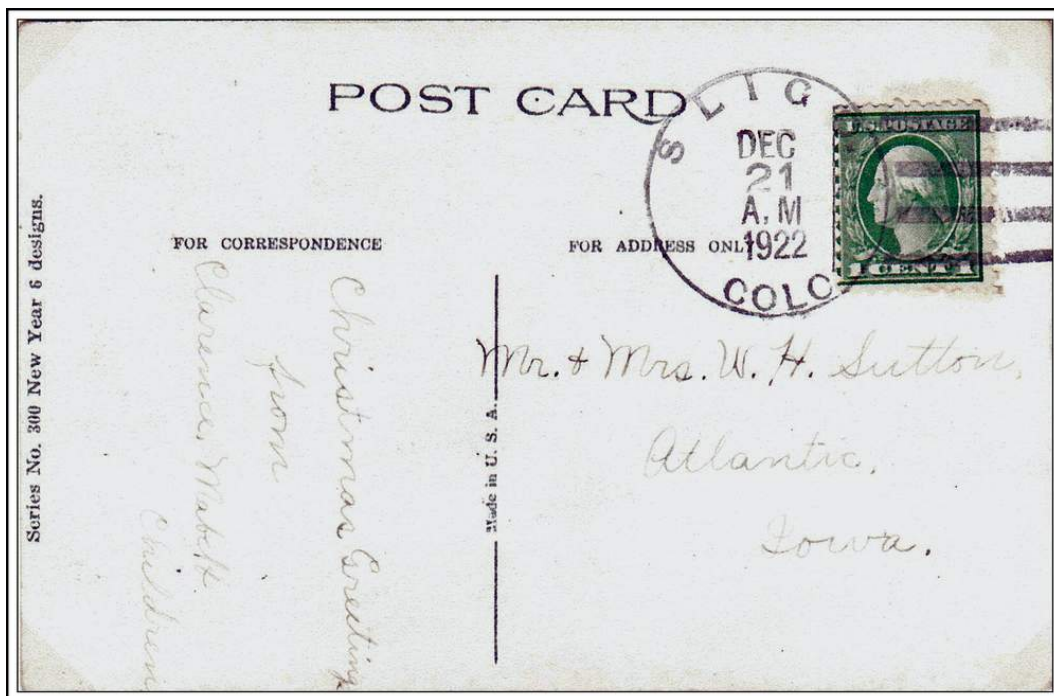 POST CARD
SLIG
DEC
21
A.M
1922
COLO
U.S. POSTAGE
1 CENT 1
Series No. 300 New Year 6 designs.
FOR CORRESPONDENCE
FOR ADDRESS ONLY
Made in U. S. A.
Christmas Greeting
from
Clarence, Mabel &
Children
Mr. & Mrs. W. H. Sutton,
Atlantic,
Iowa.